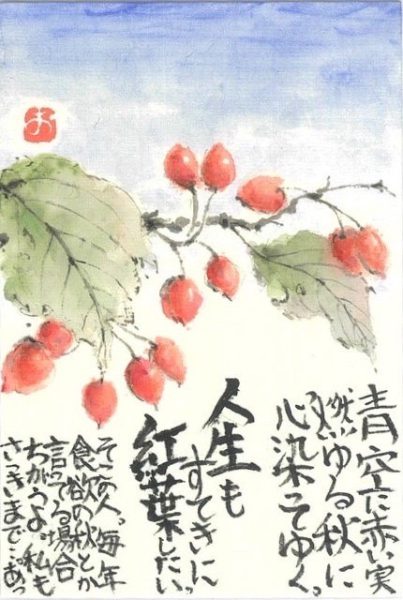 青空に赤い実
燃ゆる秋に
心染めてゆく。
人生も
すてきに
紅葉したい
そこの人。毎年
食欲の秋とか
言ってる場合
ちがうよ。私も
さっきまで…あっ